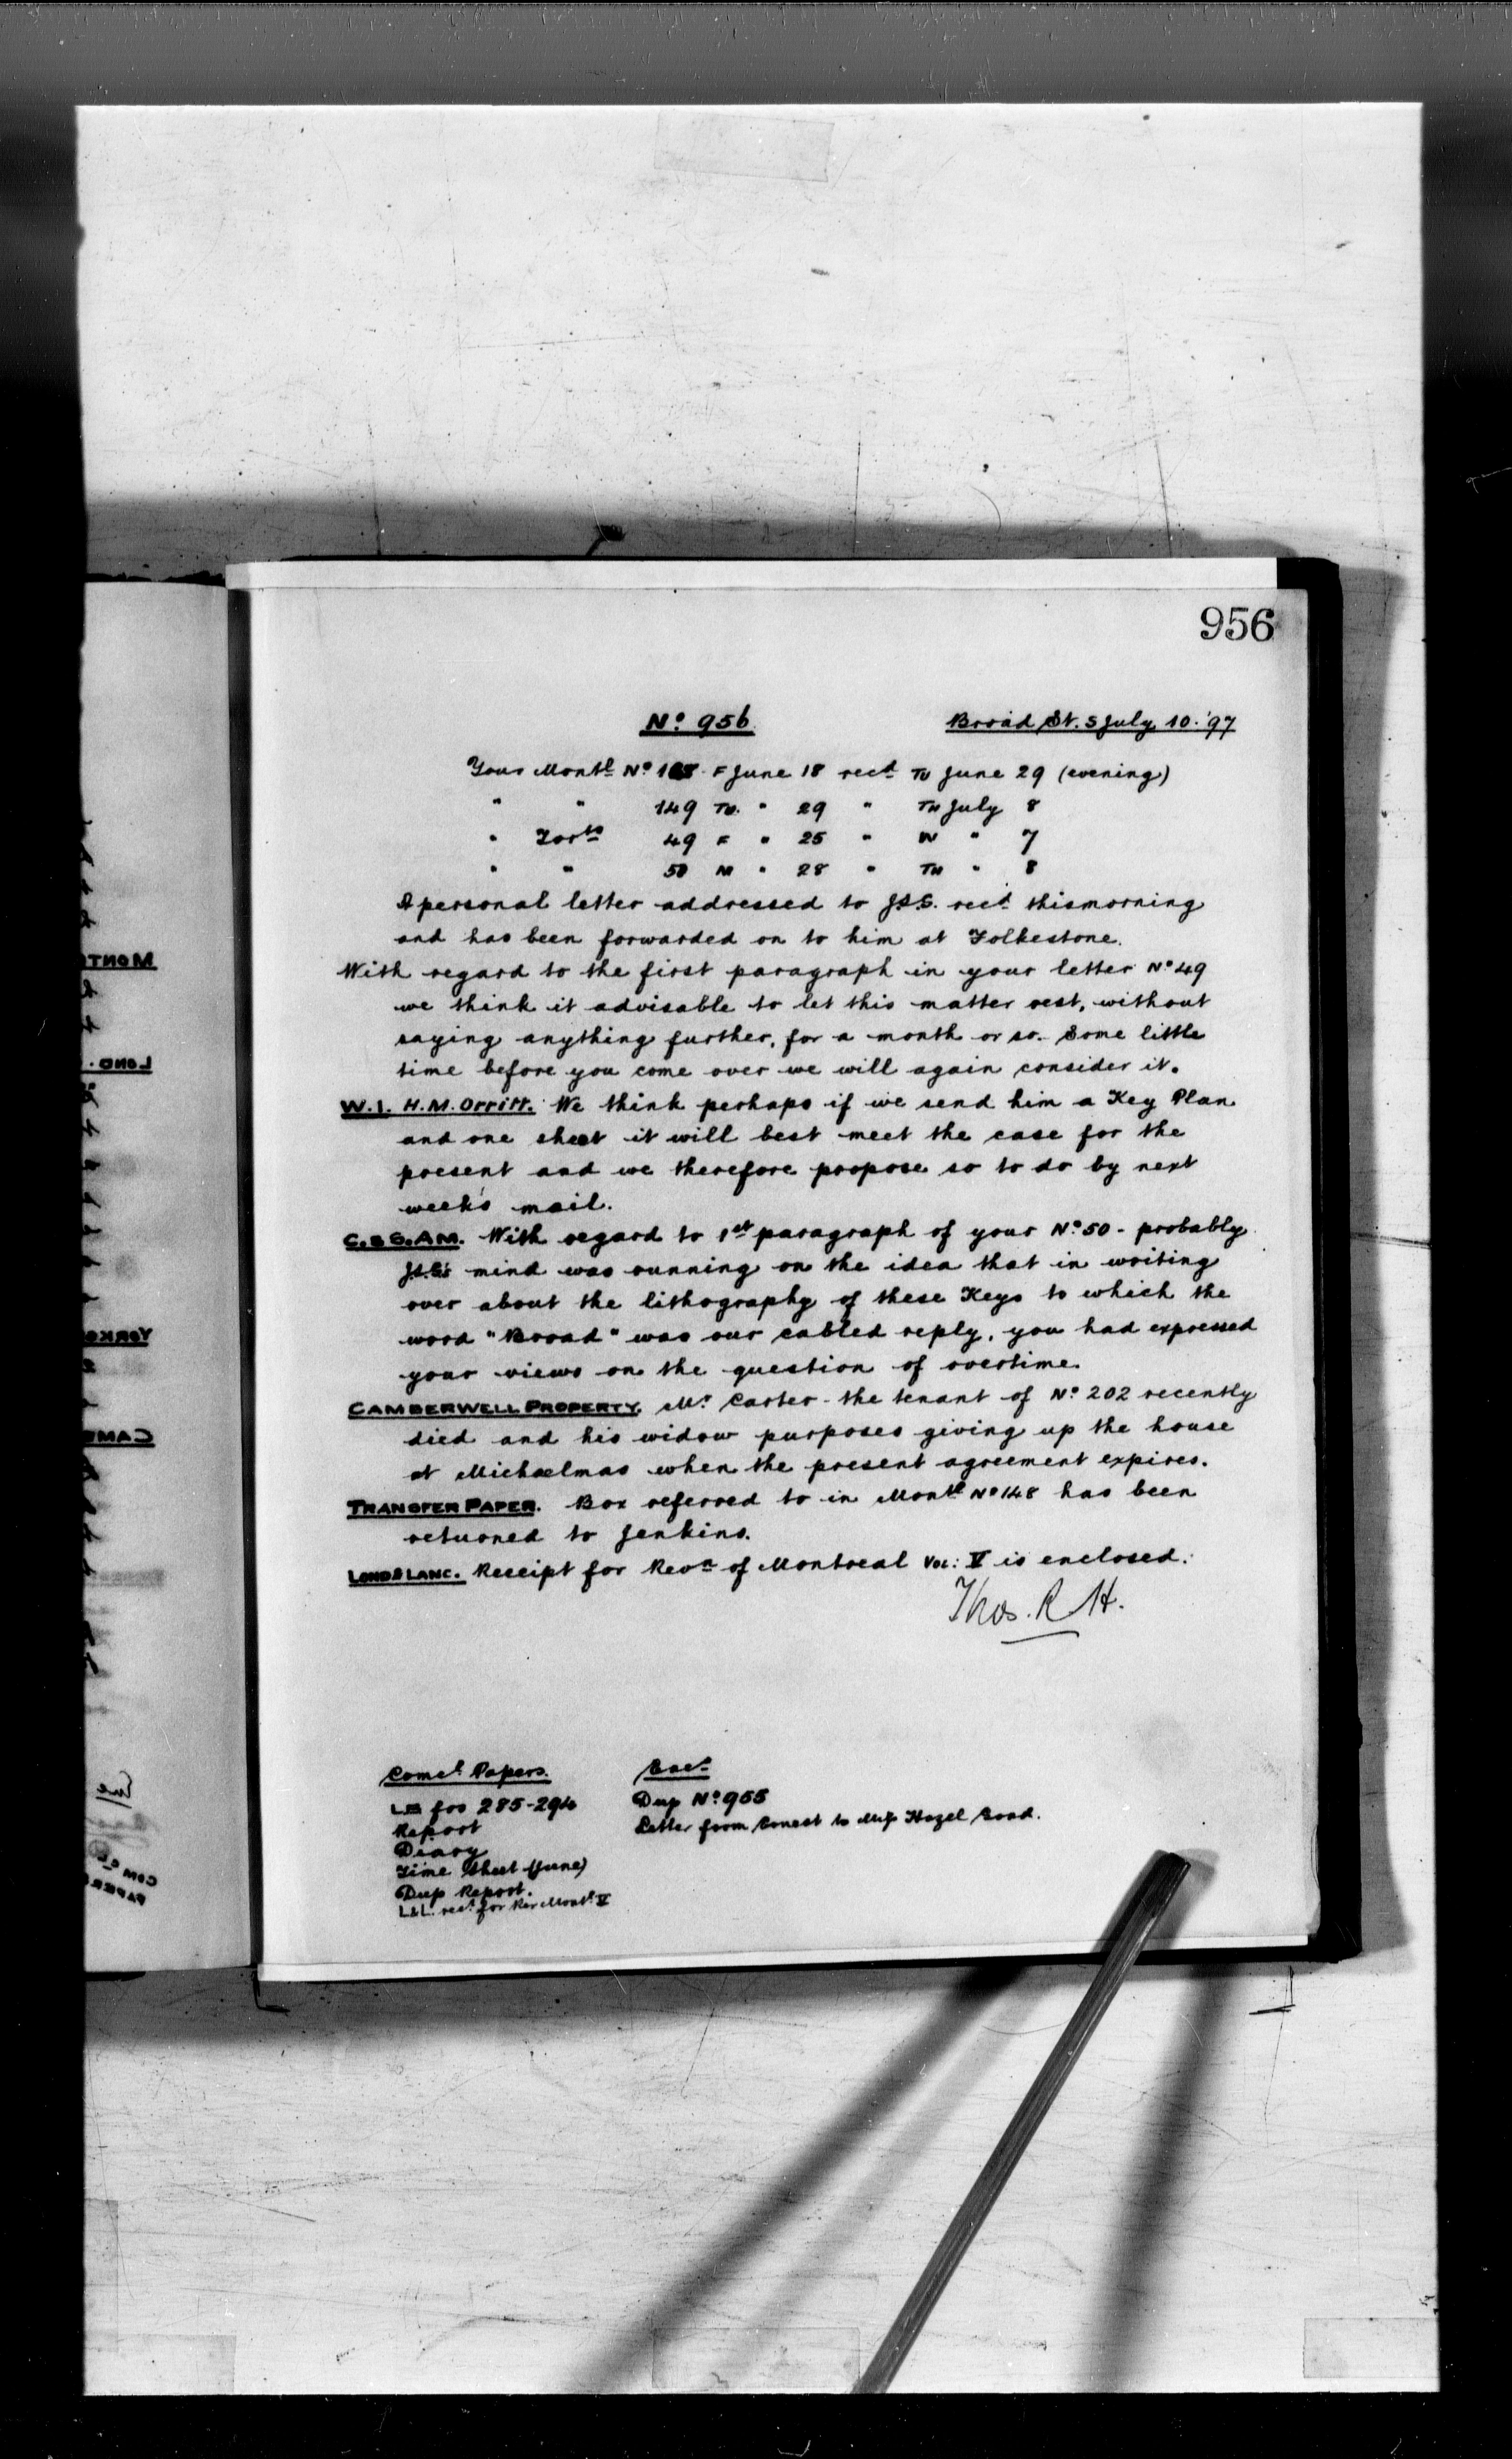 956
No. 956. Broad St. S July 10. '97
Your Montl No 148 F June 18 recd Tu June 29 (evening)
" " 149 Tu. " 29 " Th July 8
" Torto 49 F " 25 " W " 7
" " 50 M " 28 " Th " 8
A personal letter addressed to recd this morning
and has been forwarded on to him at Folkestone.
With regard to the first paragraph in your letter No 49
we think it advisable to let this matter rest, without
saying anything further, for a month or so. Some little
time before you come over we will again consider it.
W.I. H.M. Orritt. We think perhaps if we send him a Key Plan
and one sheet it will best meet the case for the
present and we therefore propose so to do by next
week's mail.
C. & S. AM. With regard to 1st paragraph of your No. 50 - probably
mind was running on the idea that in writing
over about the lithography of these Keys to which the
word "Broad" was our cabled reply, you had expressed
your views on the question of overtime.
CAMBERWELL PROPERTY. Mr. Carter - the tenant of No. 202 recently
died and his widow purposes giving up the house
at Michaelmas when the present agreement expires.
TRANSFER PAPER. Box referred to in Montl No 148 has been
returned to Jenkins.
LOND & LANC. Receipt for Revn of Montreal Vol: V is enclosed.
Thos. R H.
Comcl Papers.
LB fos 285-294
Report
Diary
Time Sheet (June)
Dup Report.
L & L. rect for Rev Montl V
Encs
Dup No. 955
Letter from Ernest to Miss Hazel Goad.
MONT
LOND.
YORK
CAM
COMCL
PAPER